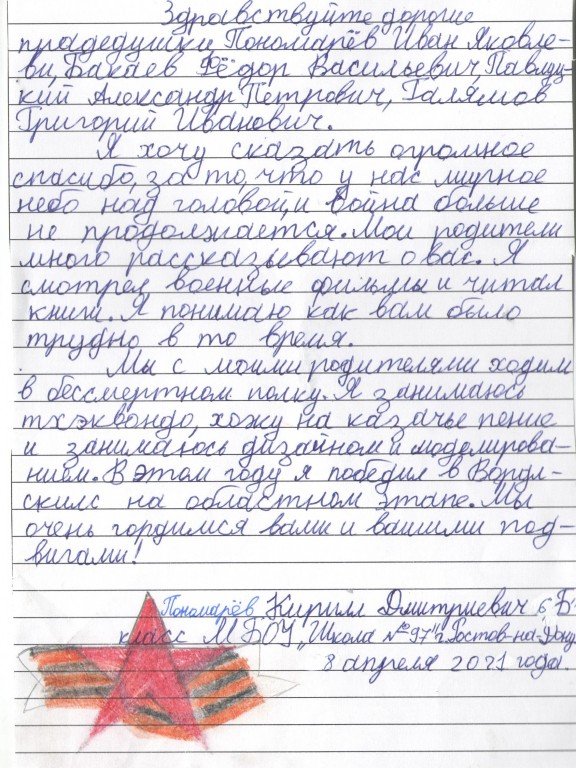 Здравствуйте дорогие
прадедушки, Пономарёв Иван Яковле-
ви, Бакаев Фёдор Васильевич, Павлуц-
кий Александр Петрович, Галямов
Григорий Иванович.
Я хочу сказать огромное
спасибо, за то, что у нас мирное
небо над головой, и война больше
не продолжается. Мои родители
много рассказывают о вас. Я
смотрел военные фильмы и читал
книги. Я понимаю как вам было
трудно в то время.
Мы с моими родителями ходим
в бессмертном полку. Я занимаюсь
тхэквондо, хожу на казачье пение
и занимаюсь дизайном и моделирова-
нием. В этом году я победил в Ворлд-
скилс на областном этапе. Мы
очень гордимся вами и вашими под-
вигами!
Пономарёв Кирилл Дмитриевич 6 "Б"
класс МБОУ "Школа №97" г. Ростов-на-Дону
8 апреля 2021 года.